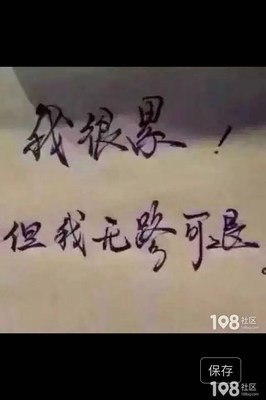 我很累！
但我无路可退。
198社区
198社区
保存